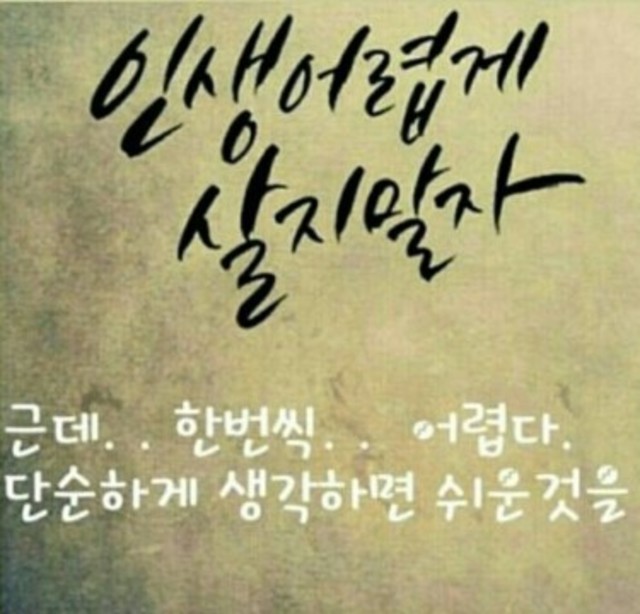 인생어렵게
살지말자
근데. . 한번씩. . 어렵다.
단순하게 생각하면 쉬운것을